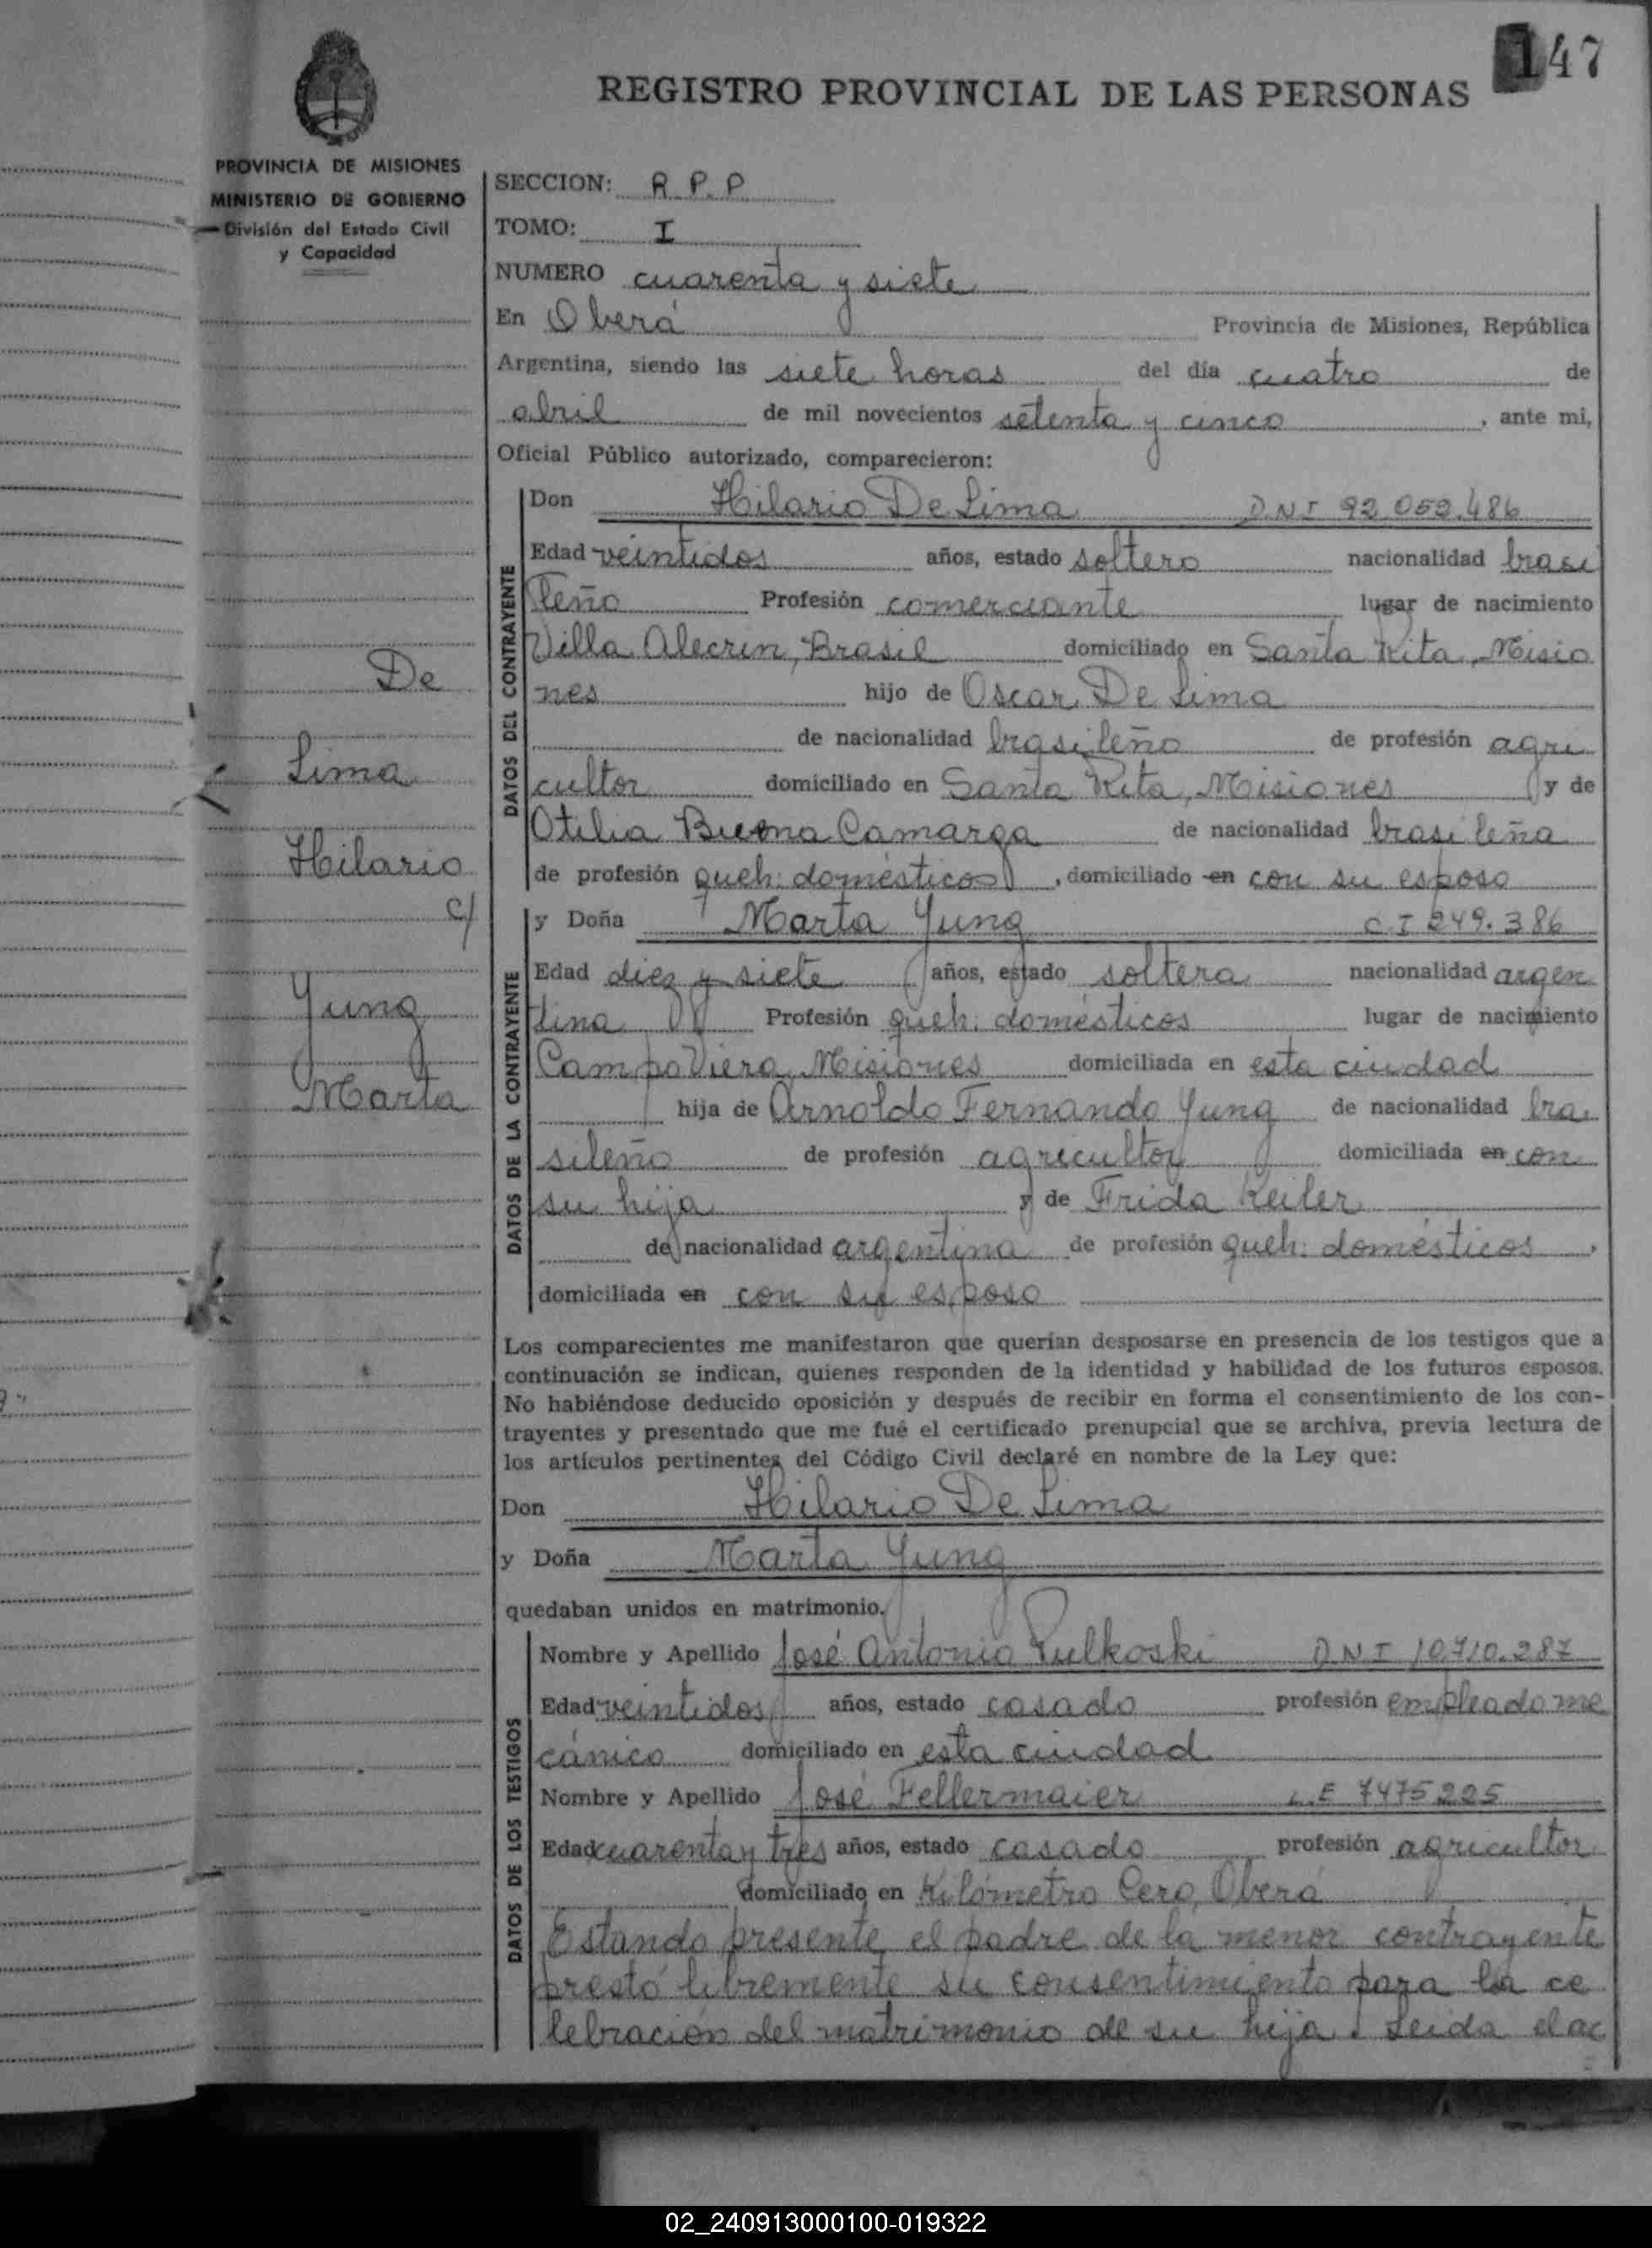 147
REGISTRO PROVINCIAL DE LAS PERSONAS
PROVINCIA DE MISIONES
MINISTERIO DE GOBIERNO
División del Estado Civil
y Capacidad
De
Lima
Hilario
c/
Yung
Marta
SECCION: R.P.P
TOMO: I
NUMERO cuarenta y siete
En Oberá Provincia de Misiones, República
Argentina, siendo las siete horas del día cuatro de
abril de mil novecientos setenta y cinco, ante mi,
Oficial Público autorizado, comparecieron:
DATOS DEL CONTRAYENTE
Don Hilario De Lima D.N.I 92.052.486
Edad veintidos años, estado soltero nacionalidad brasi
leño Profesión comerciante lugar de nacimiento
Villa Alecrin, Brasil domiciliado en Santa Rita, Misio
nes hijo de Oscar De Lima
de nacionalidad brasileño de profesión agri
cultor domiciliado en Santa Rita, Misiones y de
Otilia Buena Camarga de nacionalidad brasileña
de profesión queh. domésticos, domiciliado en con su esposo
DATOS DE LA CONTRAYENTE
y Doña Marta Yung C.I 249.386
Edad diez y siete años, estado soltera nacionalidad argen
tina Profesión queh. domésticos lugar de nacimiento
Campo Viera, Misiones domiciliada en esta ciudad
hija de Arnoldo Fernando Yung de nacionalidad bra
sileño de profesión agricultor domiciliada en con
su hija y de Frida Keiler
de nacionalidad argentina de profesión queh. domésticos,
domiciliada en con su esposo
Los comparecientes me manifestaron que querían desposarse en presencia de los testigos que a
continuación se indican, quienes responden de la identidad y habilidad de los futuros esposos.
No habiéndose deducido oposición y después de recibir en forma el consentimiento de los con-
trayentes y presentado que me fué el certificado prenupcial que se archiva, previa lectura de
los artículos pertinentes del Código Civil declaré en nombre de la Ley que:
Don Hilario De Lima
y Doña Marta Yung
quedaban unidos en matrimonio.
DATOS DE LOS TESTIGOS
Nombre y Apellido José Antonio Pulkoski D.N.I 10.710.287
Edad veintidos años, estado casado profesión empleado me
cánico domiciliado en esta ciudad
Nombre y Apellido José Fellermaier L.E 7475225
Edad cuarenta y tres años, estado casado profesión agricultor
domiciliado en Kilómetro Cero, Oberá
Estando presente el padre de la menor contrayente
prestó libremente su consentimiento para la ce
lebración del matrimonio de su hija. Leida el ac
02_240913000100-019322